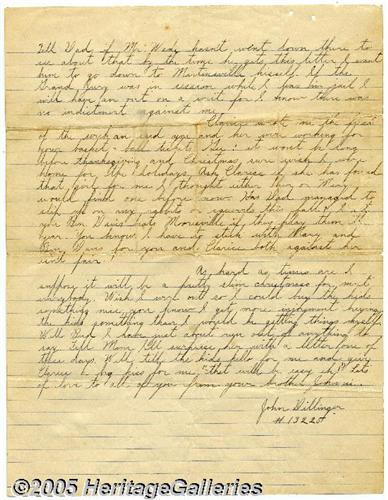 Tell Dad, if Mr. Wede hasnt went down there to
see about that by the time he gets this letter I want
him to go down to Martinsville hisself. If the
Grand Jury was in session while I was in jail I
will have an out on a writ for I know there was
no indictment against me.
Clarice wrote me the first
of the week an said you and her were working for
your basket-ball tickets. Gee! it wont be long
before thanksgiving and Christmas, sure wish I were
home for the holidays. Ask Clarice if she has found
that girl for me I thought either her or Mary
would find one before now. Has Dad managed to
slip up on any or squirrels this fall? I hope
you beat Mooresville if they play them this
year. You know I have to stick with Mary and
for you and Clarice both against her
isnt fair.
As hard as times are I
suppose it will be a pretty slim christmas for most
everybody. Wish I were out so I could buy the kids
something nice, you know I get more enjoyment buying
the kids something than I would be getting things myself.
Well I have just about run out of anything to
say. Tell Mom I'll surprise her with a letter one of
these days. Well tell the kids hello for me and give
Clarice a big kiss for me, "that will be easy eh"! Lots
of love to all of you from your brother
John Dillinger
#13225
©2005 HeritageGalleries